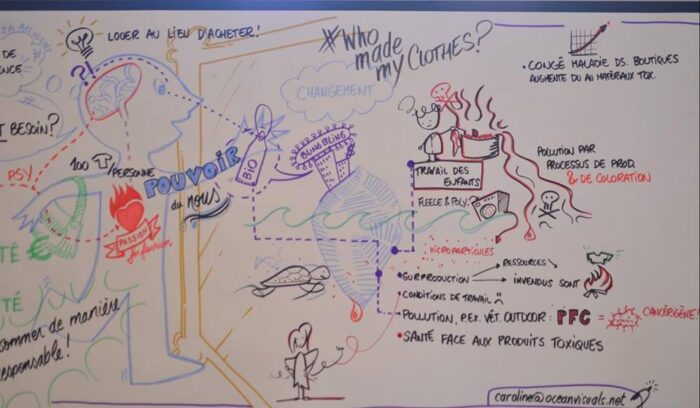 DE
LOUER AU LIEU D'ACHETER!
?!
BESOIN?
PSY
100 T/PERSONNE
POUVOIR
du nous!
PASSION
TÉ €
TÉ
de manière
esponsable!
#Who
made
my CLOTHES?
CHANGEMENT
BIO
BLING BLING
TRAVAIL DES
ENFANTS
FLEECE & POLY.
MICROPARTICULES
• CONGÉ MALADIE DS. BOUTIQUES
AUGMENTE DU AU MATÉRIAUX TOX.
POLLUTION PAR
PROCESSUS DE PROD.
& DE COLORATION
RESSOURCES
• SURPRODUCTION
INVENDUS SONT
• CONDITIONS DE TRAVAIL
• POLLUTION, P.EX. VÊT. OUTDOOR: PFC = CANCÉRGÈNE!
• SANTÉ FACE AUX PRODUITS TOXIQUES
caroline@oceanvisuals.net